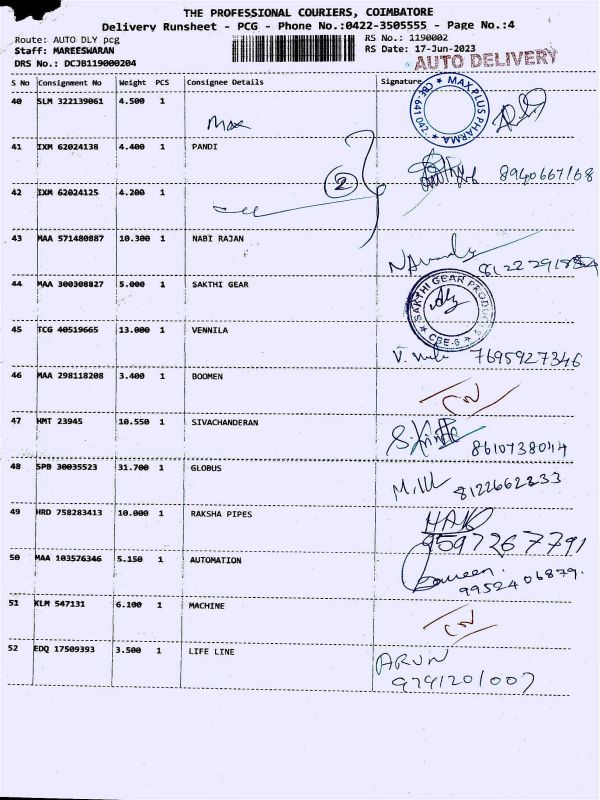 THE PROFESSIONAL COURIERS, COIMBATORE
Delivery Runsheet - PCG - Phone No.:0422-3505555 - Page No.:4
Route: AUTO DLY pcg RS No.: 1190002
Staff: MAREESWARAN RS Date: 17-Jun-2023
DRS No.: DCJB119000204 AUTO DELIVERY
S No Consignment No Weight PCS Consignee Details Signature
40 SLM 322139061 4.500 1 Max
MAX PLUS PHARMA CBE-641 042
41 IXM 62024138 4.400 1 PANDI 8940667168
2
42 IXM 62024125 4.200 1
43 MAA 571480887 10.300 1 NABI RAJAN
44 MAA 300308827 5.000 1 SAKTHI GEAR
SAKTHI GEAR PRODUCTS CBE-6
45 TCG 40519665 13.000 1 VENNILA 7695927346
46 MAA 298118208 3.400 1 BOOMEN
47 HMT 23945 10.550 1 SIVACHANDERAN
48 SPB 30035523 31.700 1 GLOBUS 8122662333
49 HRD 758283413 10.000 1 RAKSHA PIPES 9597267791
50 MAA 103576346 5.150 1 AUTOMATION 9952406879.
51 KLM 547131 6.100 1 MACHINE
52 EDQ 17509393 3.500 1 LIFE LINE ARUN
9791201007